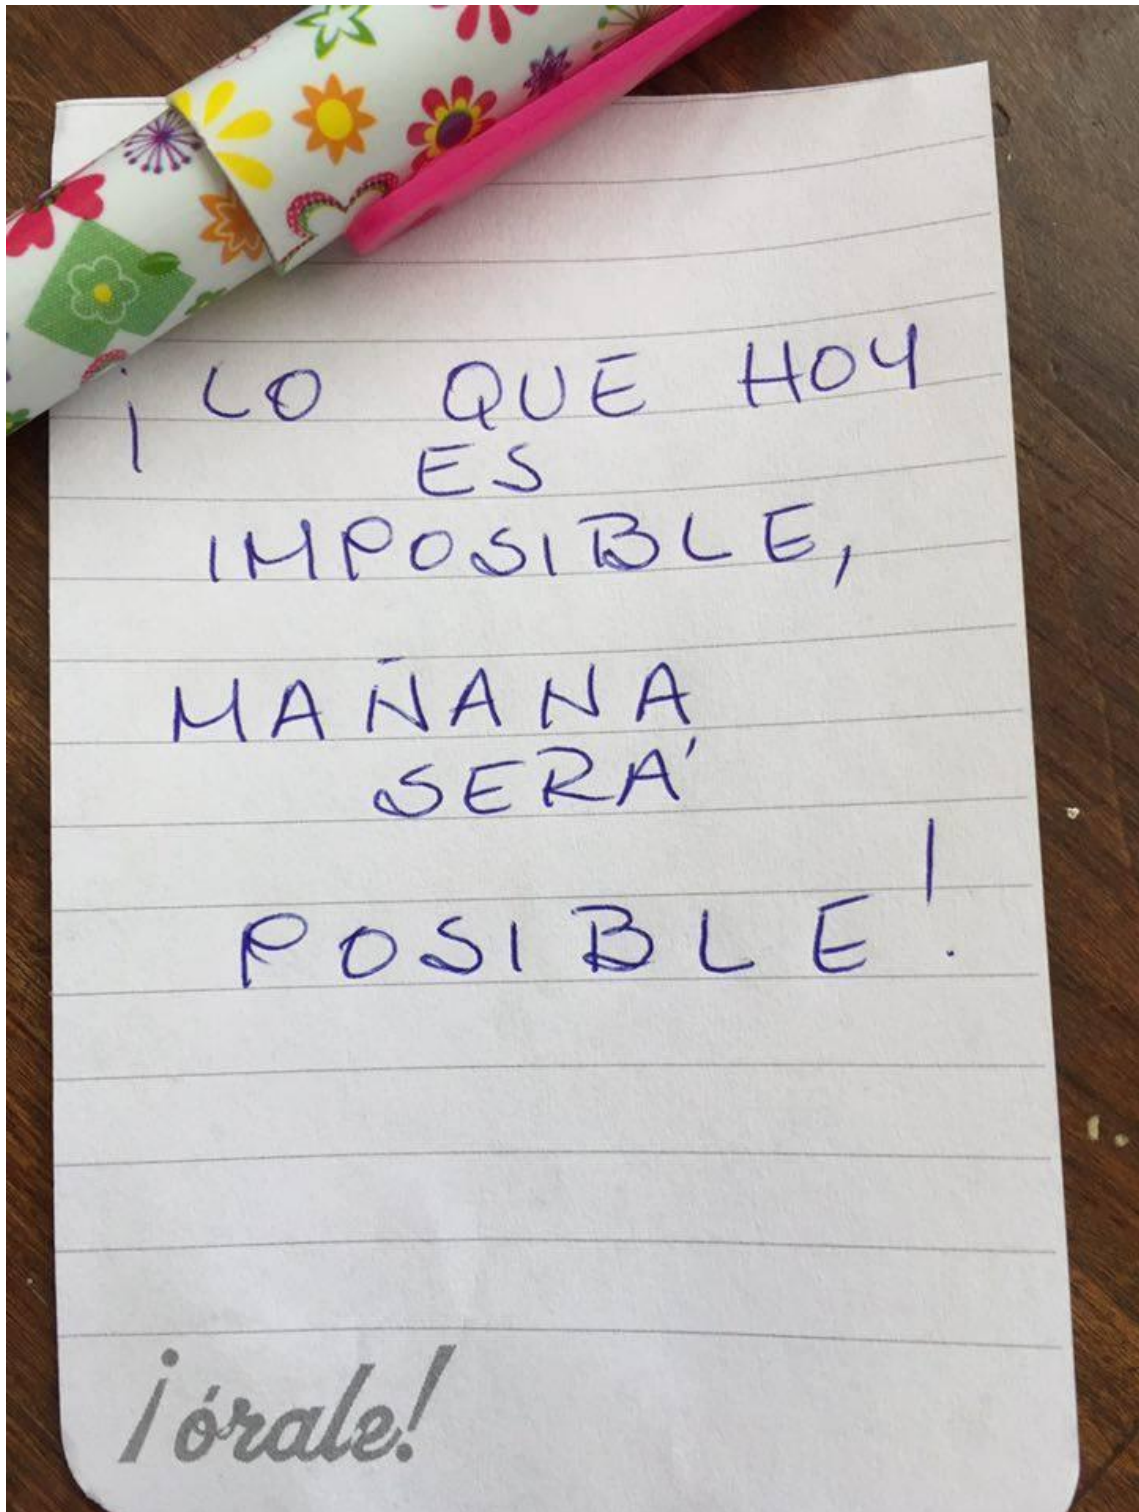 ¡LO QUE HOY
ES
IMPOSIBLE,
MAÑANA
SERÁ
POSIBLE!
¡órale!